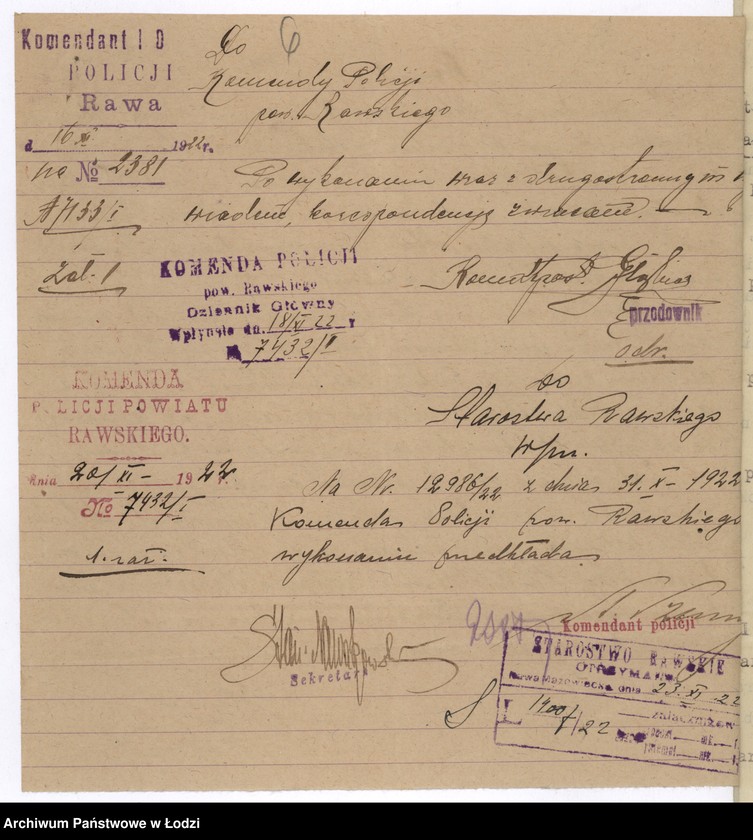 Komendant I O
POLICJI
Rawa
d 16 XI 1922 r.
na № 2381
7133 I
Zał. 1
6
Do
Komendy Policji
pow. Rawskiego
Po wykonaniu wraz z drugostronnym
korespondencję zwracam. —
KOMENDA POLICJI
pow. Rawskiego
Dziennik Główny
Wpłynęło dn. 18/XI 22 r
№ 7432/I
przodownik
KOMENDA
POLICJI POWIATU
RAWSKIEGO.
dnia 20/XI – 1922 r.
No 7432/I
1. zał.
do
Starostwa Rawskiego
w/m.
Na Nr. 12986/22 z dnia 31. X – 1922
Komenda Policji pow. Rawskiego
wykonaniu przedkłada.
Stan. Nowakowski
Sekretarz
Komendant policji
STAROSTWO RAWSKIE
OTRZYMANO
Rawa Mazowiecka, dnia 23. XI 22
L 1900/I/22
załączników